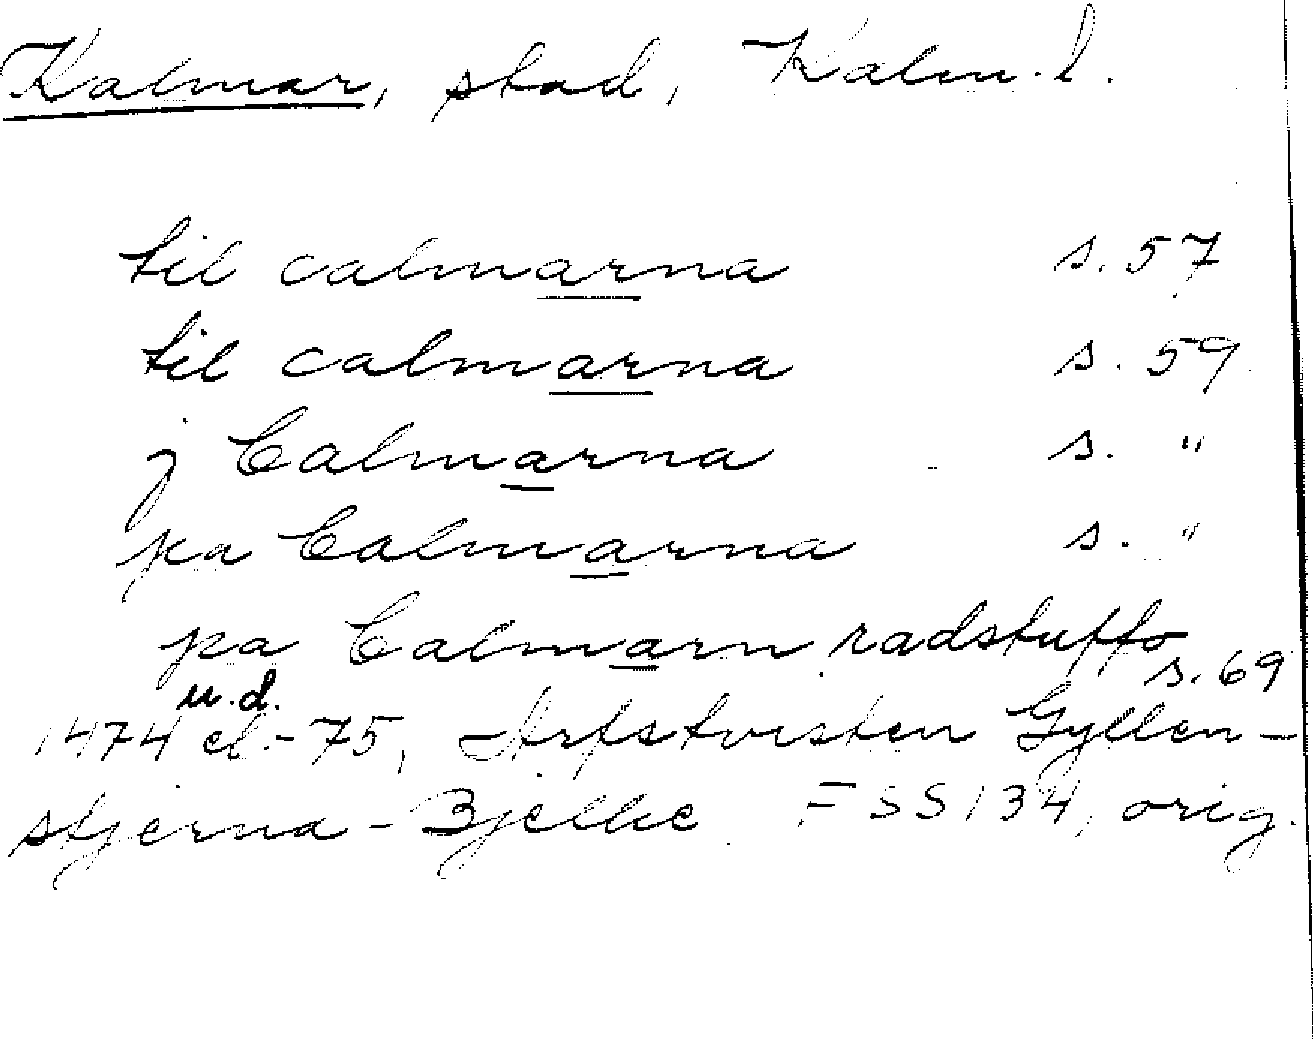 Kalmar, stad, Kalm. l.
til calmarna s. 57
til calmarna s. 59
j Calmarna s. "
pa Calmarna s. "
pa Calmarn radstuffo
s. 69
u.d.
1474 el.-75, Arfstvisten Gyllen-
stjerna-Bjelke FSS 134, orig.